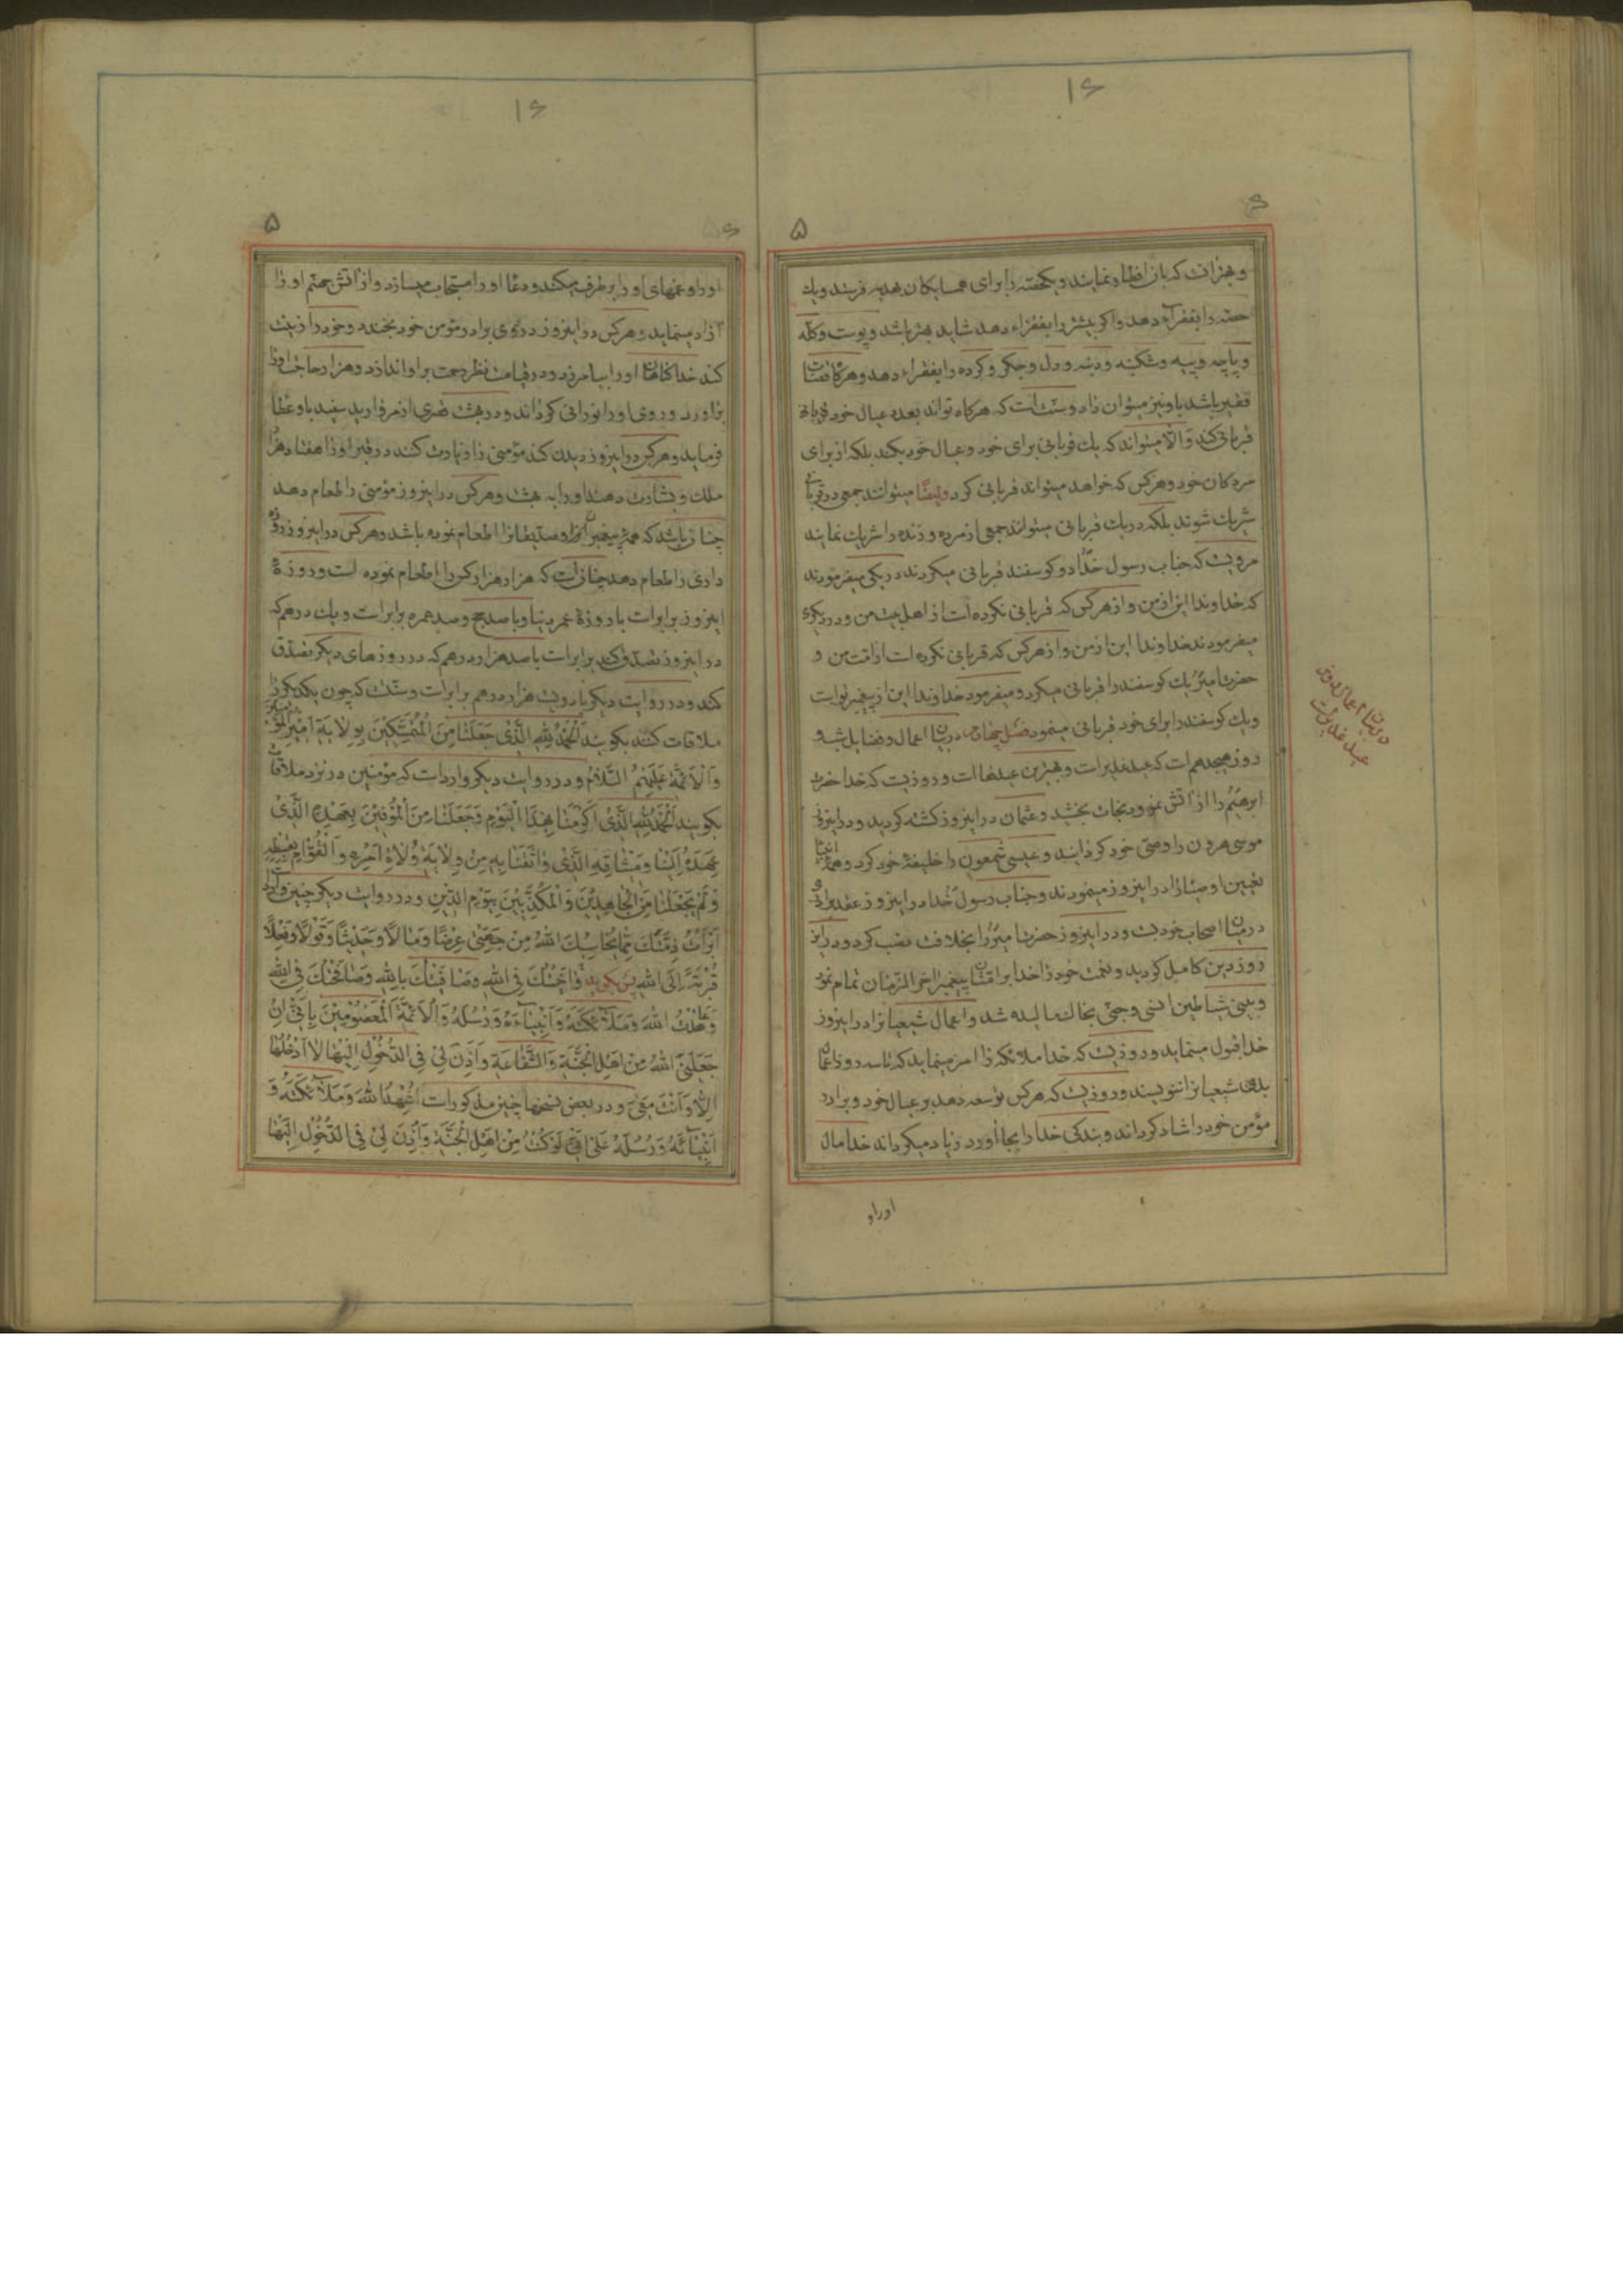 ۱۶
۶
۵
و بهتر آنست که بازان افطار نمایند و یکحصّه را برای همسایکان هدیه فرستند و یك
حصّه را بفقراء دهد و اکر بیشتر را بفقراء دهد شاید بهتر باشد و پوست و کلّه
و پاچه و پیه و شکنبه و دنبه و دل و جکر و کرده را بفقراء دهد و هرکاه قصّاب
فقیر باشد باو نیز میتوان داد و سنّت است که هرکاه تواند بعدد عیال خود قربانی
قربانی کند و الّا میتواند که یك قربانی برای خود و عیال خود بکند بلکه از برای
مردکان خود و هرکس که خواهد میتواند قربانی کرد و ایضًا میتوانند جمعی در قربانی
شریك شوند بلکه در یك قربانی میتواند جمعی از مرده و زنده را شریك نمایند
مرویست که جناب رسول خدّا دو کوسفند قربانی میکردند در یکی میفرمودند
که خداوندا این از من و از هرکس که قربانی نکرده است از اهل بیت من و در دیکری
میفرمودند خداوندا این از من و از هرکس که قربانی نکرده است از امّت من و
حضرت امیر یك کوسفند را قربانی میکرد و میفرمود خداوندا این از پیغمبر تو است
و یك کوسفند را برای خود قربانی مینمود فصل چهارم در بیان اعمال و فضایل شب و
روز هیجدهم است که عید غدیر است و بهترین عیدها است و روزیست که خدا حضرت
ابرهیم را از آتش نمرود نجات بخشید و عثمان در اینروز کشته کردید و در اینروز
موسی هرون را وصیّ خود کردانید و عیسی شمعون را خلیفهٔ خود کرد و همهٔ انبیا
تعیین اوصیا را در اینروز مینمودند و جناب رسول خدا در اینروز عقد برادری
در میان اصحاب خود بست و در اینروز حضرت امیر را بخلافت نصب کرد و در این
روز دین کامل کردید و نعمت خود را خدا بر امّتان پیغمبر آخر الزّمان تمام نمود
و بینی شیاطین انسی و جنّی بخاك مالیده شد و اعمال شیعیان را در اینروز
خدا قبول مینماید و روزیست که خدا ملائکه را امر مینماید که تا سه روز اعمال
بد شیعیان را ننویسند و روزیست که هرکس توسعه دهد بر عیال خود و برادر
مؤمن خود را شاد کرداند و بندکی خدا را بجا آورد زیاد میکرداند خدا مال
اوراو
در بیان اعمال روز
عید غدیر است
۱۶
۶
۵
اورا و غمهای او را برطرف میکند و دعا او را مستجاب میسازد و از آتش جهنّم او را
آزاد مینماید و هرکس در اینروز در روی برادر مؤمن خود بخندد و خود را زینت
کند خدا کناهان او را بیامرزد و در قیامت نظر رحمت بر او اندازد و هزار حاجت او را
برآورد و روی او را نورانی کرداند و در بهشت قصری از مروارید سفید باو عطا
فرماید و هرکس در اینروز دیدن کند مؤمنی را و زیارت کنند در قبر او را هفتاد هزار
ملك و بشارت دهند او را به بهشت و هرکس در اینروز مؤمنی را طعام دهد
چنان باشد که همهٔ پیغمبران و صدّیقانرا اطعام نموده باشد و هرکس در اینروز روزه
داری را طعام دهد چنان است که هزار هزار کس را اطعام نموده است و روزهٔ
اینروز برابر است با روزهٔ عمر دنیا و با صد حج و صد عمره برابر است و یك درهم که
در اینروز تصدّق کند برابر است با صد هزار درهم که در روزهای دیکر تصدّق
کند و در روایت دیکر با دویست هزار درهم برابر است و سنّتست که چون یکدیکر را
ملاقات کنند بکویند اَلْحَمْدُ لِلّٰهِ الَّذی جَعَلَنا مِنَ الْمُتَمَسِّکینَ بِوِلایَةِ اَمیرِ الْمُؤْمِنینَ
وَالْاَئِمَّةِ عَلَیْهِمُ السَّلامُ و در روایت دیکر وارد است که مؤمنین در نزد ملاقات
بکویند اَلْحَمْدُ لِلّٰهِ الَّذی اَکْرَمَنا بِهٰذَا الْیَوْمِ وَجَعَلَنا مِنَ الْمُوفینَ بِعَهْدِهِ الَّذی
عَهِدَهُ اِلَیْنا وَمیثاقِهِ الَّذی واثَقَنا بِهِ مِنْ وِلایَةِ وُلاةِ اَمْرِهِ وَالْقُوّامِ بِقِسْطِهِ
وَلَمْ یَجْعَلْنا مِنَ الْجاحِدینَ وَالْمُکَذِّبینَ بِیَوْمِ الدّینِ و در روایت دیکر چنین وارد است
اَبْرَأْتُ ذِمَّتَكَ مِمّا یُحاسِبُكَ اللهُ مِنْ جِهَتی عِرْضًا وَمالًا وَحَدیثًا وَقَوْلًا وَفِعْلًا
قُرْبَةً اِلَی اللهِ پس بکوید وٰاخَیْتُكَ فِی اللهِ وَصافَیْتُكَ بِاللهِ وَصافَحْتُكَ فِی اللهِ
وَعاهَدْتُ اللهَ وَمَلائِکَتَهُ وَاَنْبِیآءَهُ وَرُسُلَهُ وَالْاَئِمَّةَ الْمَعْصُومینَ بِاَنّی اِنْ
جَعَلَنِیَ اللهُ مِنْ اَهْلِ الْجَنَّةِ وَالشَّفاعَةِ وَاَذِنَ لی فِی الدُّخُولِ اِلَیْها لا اَدْخُلُها
اِلّا وَاَنْتَ مَعی و در بعض نسخها چنین مذکور است اُشْهِدُ اللهَ وَمَلائِکَتَهُ وَ
اَنْبِیآئَهُ وَرُسُلَهُ عَلیٰ اَنّی لَوْ کُنْتُ مِنْ اَهْلِ الْجَنَّةِ وَاُذِنَ لی فِی الدُّخُولِ اِلَیْها